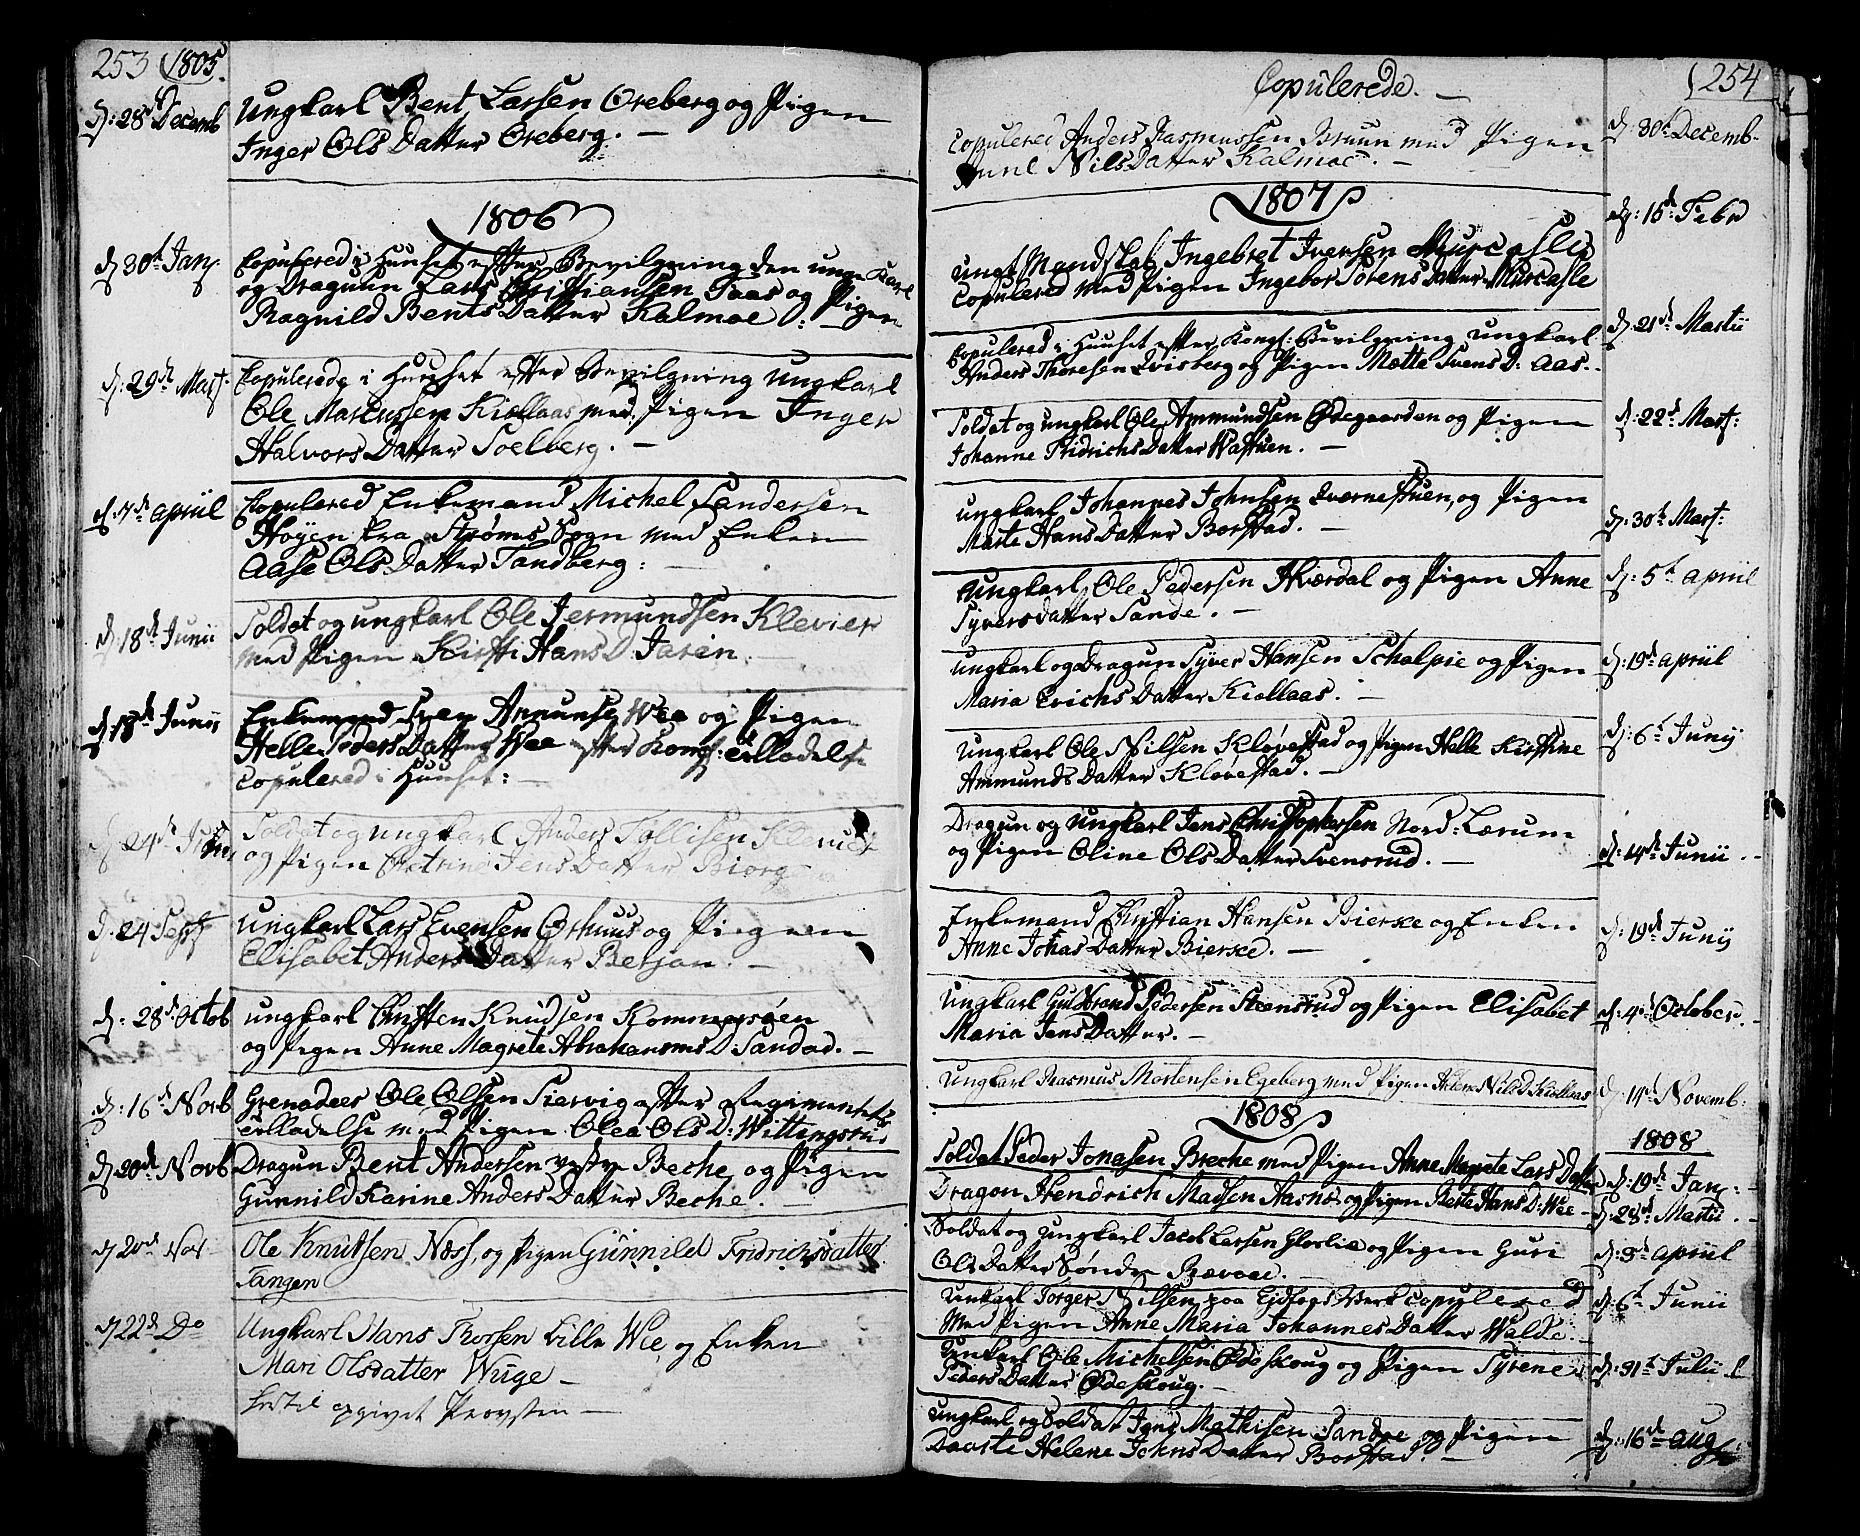 253 1805.
d: 28d Decemb
Ungkarl Bent Larsen Oreberg og Pigen
Inger Ols Datter Oreberg. —
1806
d 30t Jan.
Copulered i Huuset efter Bevilgning den unge Karl
og Dragun Lars Christiansen Faas og Pigen
Ragnild Bents Datter Kalmoe
d: 29de Mart.
Copulerede i Huuset efter Bevilgning Ungkarl
Ole Marcussen Kiøllaas med Pigen Inger
Halvors Datter Soelberg. —
d. 7de Apriil
Copulered Enkemand Michel Sandersen
Høyen fra Strøms Sogn med Enken
Aase Ols Datter Tandberg: —
d: 18de Junii
Soldat og ungkarl Ole Jermundsen Klevier
med Pigen Kirsti Hans D. Jaren. —
d: 18de Junii
Enkemand Sven Amunsen Wee og Pigen
Helle Peders Datter Wee efter Kongl: Tilladelse
Copulered i Huuset: —
d 24de Junii
Soldat og ungkarl Anders Tollisen Klevier
og Pigen Catrine Jens Datter Biorge
d. 24 Sept
Ungkarl Lars Evensen Orhuus og Pigen
Elisabet Anders Datter Berjan. —
d: 28de Octob
ungkarl Christen Knudsen Kommersøen
og Pigen Anne Magrete Abrahams D. Sandad. —
d: 16de Novb
Grenadeer Ole Olsen Siervig efter Regimentets
Tilladelse med Pigen Olea Ols D: Wittingsrud
d. 20de Novb
Dragun Bent Andersen vestre Beche og Pigen
Gunnild Karine Anders Datter Beche. —
d 20d Nov
Ole Knutsen Næss, og Pigen Gunnild Fridrichsdatter
Tangen
d 22d Do
Ungkarl Hans Thorsen Lille Wee og Enken
Mari Olsdatter Wüge —
hertil opgivet Provsten —
254
Copulerede. —
Copulered Anders Rasmussen Bruun med Pigen
Anne Nils Datter Kalmoe. —
d: 30te Decemb.
1807
d: 15d: Febr
ungt Mandskab Ingebret Iversen Murcasle
Copulered med Pigen Ingebor Sørens Datter Murcasle
d: 21de Martii
Copulered i Huuset efter Kongl: Bevilgning Ungkarl
Anders Thoresen Qvisberg og Pigen Mætte Svens D: Aas. -
d: 22de Mart:
Soldat og ungkarl Ole Ammundsen Ødegaarden og Pigen
Johanne Fridrichs Datter Wastuen. —
d: 30te Mart:
ungkarl Johannes Johnsen Qværnestuen, og Pigen
Marte Hans Datter Borstad. —
d: 5t Apriil
Ungkarl Ole Pedersen Hværdal og Pigen Anne
Syversdatter Sande. —
d: 19de Apriil
ungkarl og Dragun Syver Hansen Schalpie og Pigen
Maria Erichs Datter Kiøllaas. —
d: 6t Junij
Ungkarl Ole Nilsen Kløvestad og Pigen Helle Kirstine
Ammunds Datter Kløvestad. —
d: 14de Junii
Dragun og Ungkarl Jens Christophersen Nord-Lærum
og Pigen Oline Ols Datter Svensrud. —
d: 19de Junij
Enkemand Christian Hansen Bierke og Enken
Anne Johas Datter Bierke. —
d: 4de October
Ungkarl Guldbrand Pedersen Steensrud og Pigen Elisabet
Maria Jens Datter. —
d: 14de Novemb:
Ungkarl Rasmus Mortensen Egeberg med Pigen Helene Nils D Kiøllaas
1808
1808
Soldat Peder Jonasen Breche med Pigen Anne Magrete Lars Datter
d: 19de Jan:
Dragon Hendrich Madsen Aasnes og Pigen Berte Hans D: Wee
d: 28de Martii
Soldat og Ungkarl Jacob Larsen Glorlie og Pigen Guri
Ols Datter Søndre Bævoae. —
d: 3de Apriil
Unkarl Torger Nilsen paa Eidfogs Værk copulered
med Pigen Anne Maria Johannes Datter Walde.
d: 6t Junii
Unkarl Ole Michelsen Ødeskoug og Pigen Syrene
Peders Datter Ødeskoug. —
d: 31t Julii
Ungkarl og Soldat Jens Mathisen Sandre og Pigen
Daarte Helene Johns Datter Borstad. —
d: 16de Aug